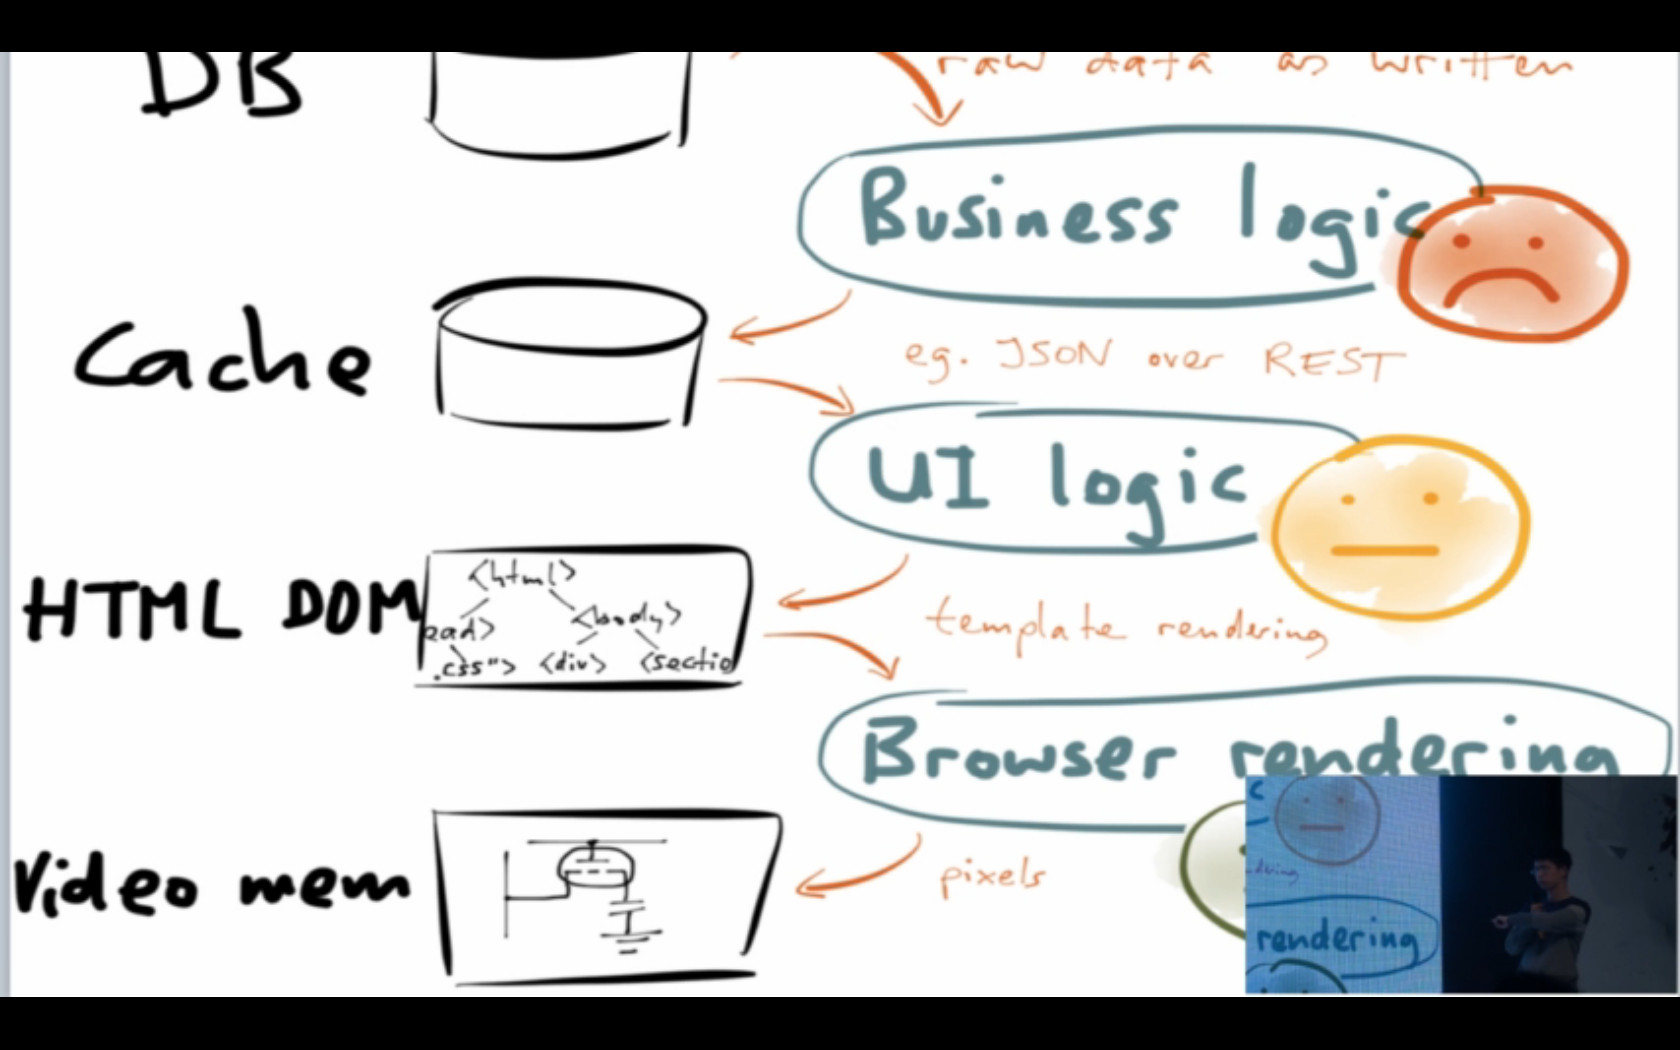 DB
raw data as written
Business logic
Cache
eg. JSON over REST
UI logic
HTML DOM
<html>
ead>
<body>
.css">
<div>
<sectio
template rendering
Browser rendering
Video mem
pixels
c
dering
rendering